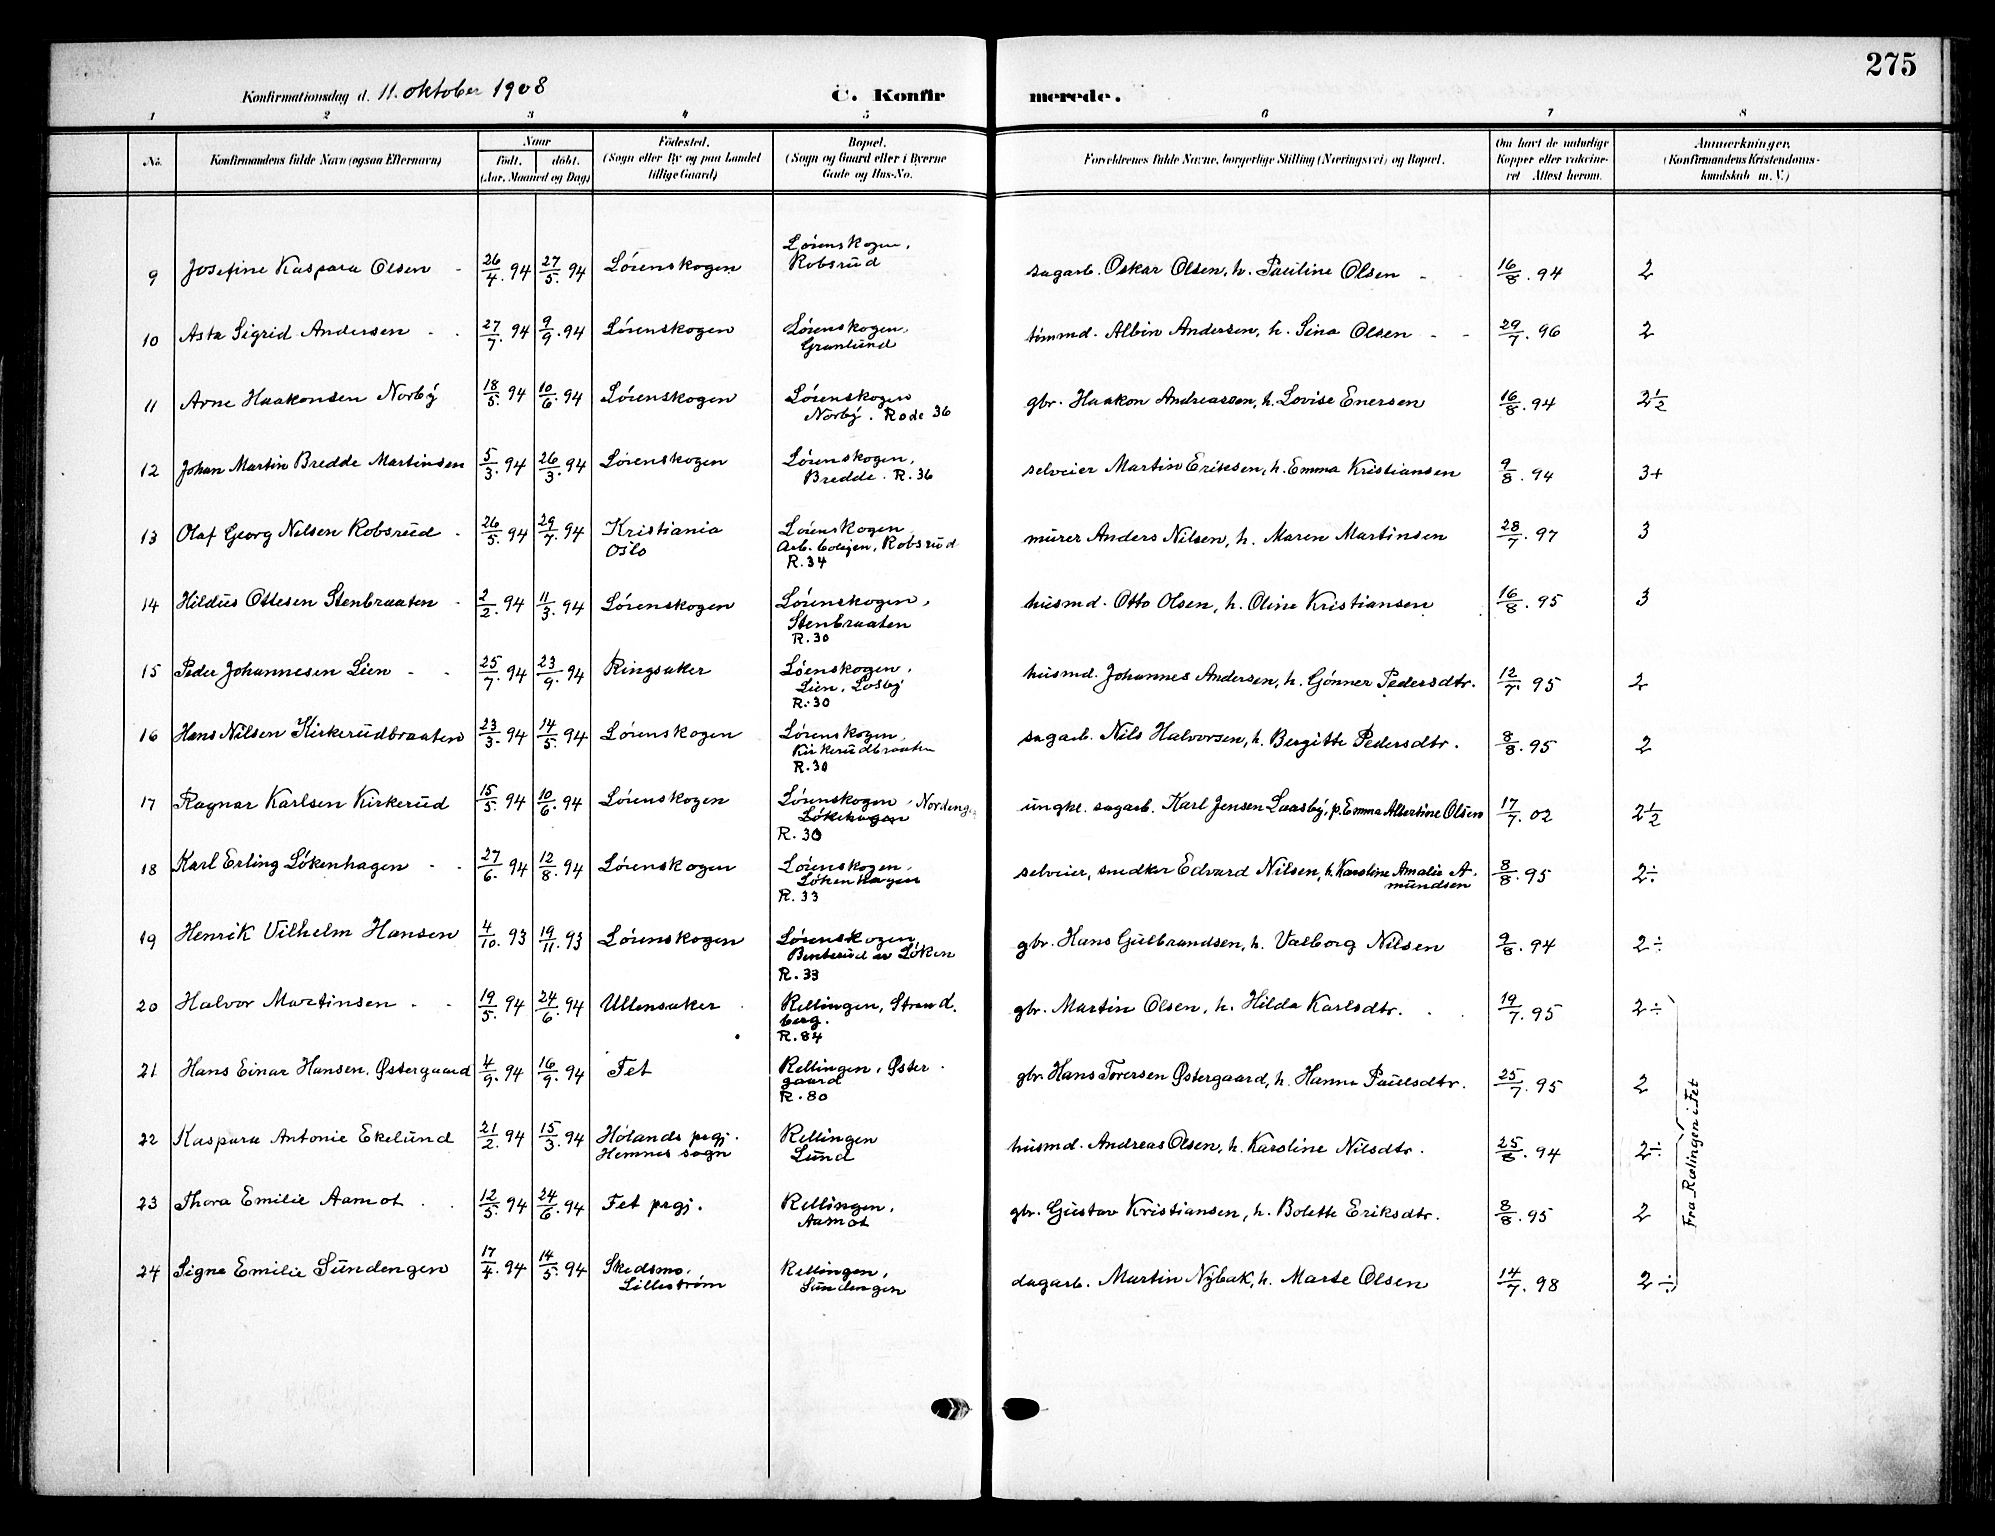 275
Konfirmationsdag d. 11. oktober 1908 C. Konfir merede.
1 2 3 4 5 6 7 8
No. Konfirmandens fulde Navn (ogsaa Efternavn) Naar født. døbt. (Aar, Maaned og Dag) Fødested. (Sogn eller By og paa Landet tillige Gaard) Bopæl. (Sogn og Gaard eller i Byerne Gade og Hus-No. Forældrenes fulde Navne, borgerlige Stilling (Næringsvei) og Bopæl. Om havt de naturlige Kopper eller vakcineret. Attest herom. Anmærkninger, (Konfirmandens Kristendomskundskab m. V.)
9 Josefine Kaspara Olsen 26/4. 94 27/5. 94 Lørenskogen Lørenskogen, Robsrud sagarb. Oskar Olsen, h. Pauline Olsen 16/8. 94 2
10 Asta Sigrid Andersen 27/7. 94 9/9. 94 Lørenskogen Lørenskogen, Granlund tømmd. Albin Andersen, h. Sina Olsen 29/7. 96 2
11 Arne Haakonsen Norby 18/5. 94 10/6. 94 Lørenskogen Lørenskogen Norby. Rode 36 gbr. Haakon Andreassen, h. Lovise Enersen 16/8. 94 2½
12 Johan Martin Bredde Martinsen 5/3. 94 26/3. 94 Lørenskogen Lørenskogen, Bredde. R. 36 selveier Martin Eriksen, h. Emma Kristiansen 9/8. 94 3+
13 Olaf Georg Nilsen Robsrud 26/5. 94 29/7. 94 Kristiania Oslo Lørenskogen Arb. boligen, Robsrud R. 34 murer Anders Nilsen, h. Maren Martinsen 28/7. 97 3
14 Hildus Ottesen Stenbraaten 2/2. 94 11/3. 94 Lørenskogen Lørenskogen, Stenbraaten R. 30 husmd. Otto Olsen, h. Oline Kristiansen 16/8. 95 3
15 Peder Johannesen Lien 25/7. 94 23/9. 94 Ringsaker Løenskogen, Lien, Losby R. 30 husmd. Johannes Andersen, h. Gønner Pedersdtr. 12/7. 95 2
16 Hans Nilsen Kirkerudbraaten 23/3. 94 14/5. 94 Lørenskogen Lørenskogen, Kirkerudbraaten R. 30 sagarb. Nils Halvorsen, h. Bergitte Pedersdtr. 8/8. 95 2
17 Ragnar Karlsen Kirkerud 15/5. 94 10/6. 94 Lørenskogen Lørenskogen, Nordeng, Løkenhagen R. 30 ungkl. sagarb. Karl Jensen Laasby, p. Emma Albertine Olsen 17/7. 02 2½
18 Karl Erling Løkenhagen 27/6. 94 12/8. 94 Lørenskogen Lørenskogen, Løkenhagen R. 33 selveier, snedker Edvard Nilsen, h. Karoline Amalie Amundsen 8/8. 95 2÷
19 Henrik Vilhelm Hansen 4/10. 93 19/11. 93 Lørenskogen Lørenskogen, Benterud av Løken R. 33 gbr. Hans Gulbrandsen, h. Valborg Nilsen 9/8. 94 2÷
20 Halvor Martinsen 19/5. 94 24/6. 94 Ullensaker Rellingen, Strandberg. R. 84 gbr. Martin Olsen, h. Hilda Karlsdtr. 19/7. 95 2÷
21 Hans Einar Hansen. Østergaard 4/9. 94 16/9. 94 Fet Rellingen, Østergaard R. 80 gbr Hans Torersen Østergaard, h. Hanna Paulsdtr. 25/7. 95 2
22 Kaspara Antonie Ekelund 21/2. 94 15/3. 94 Hølands prgj. Hemnes sogn Rellingen Lund husmd. Andreas Olsen, h. Karoline Nilsdtr. 25/8. 94 2÷
23 Thora Emilie Aamot 12/5. 94 24/6. 94 Fet prgj. Rellingen, Aamot gbr. Gustav Kristiansen, h. Bolette Eriksdtr. 8/8. 95 2
24 Signe Emilie Sundengen 17/4. 94 14/5. 94 Skedsmo, Lillestrøm Rellingen, Sundengen dagarb. Martin Nybak, h. Marte Olsen 14/7. 98 2÷
Fra Rælingen i Fet